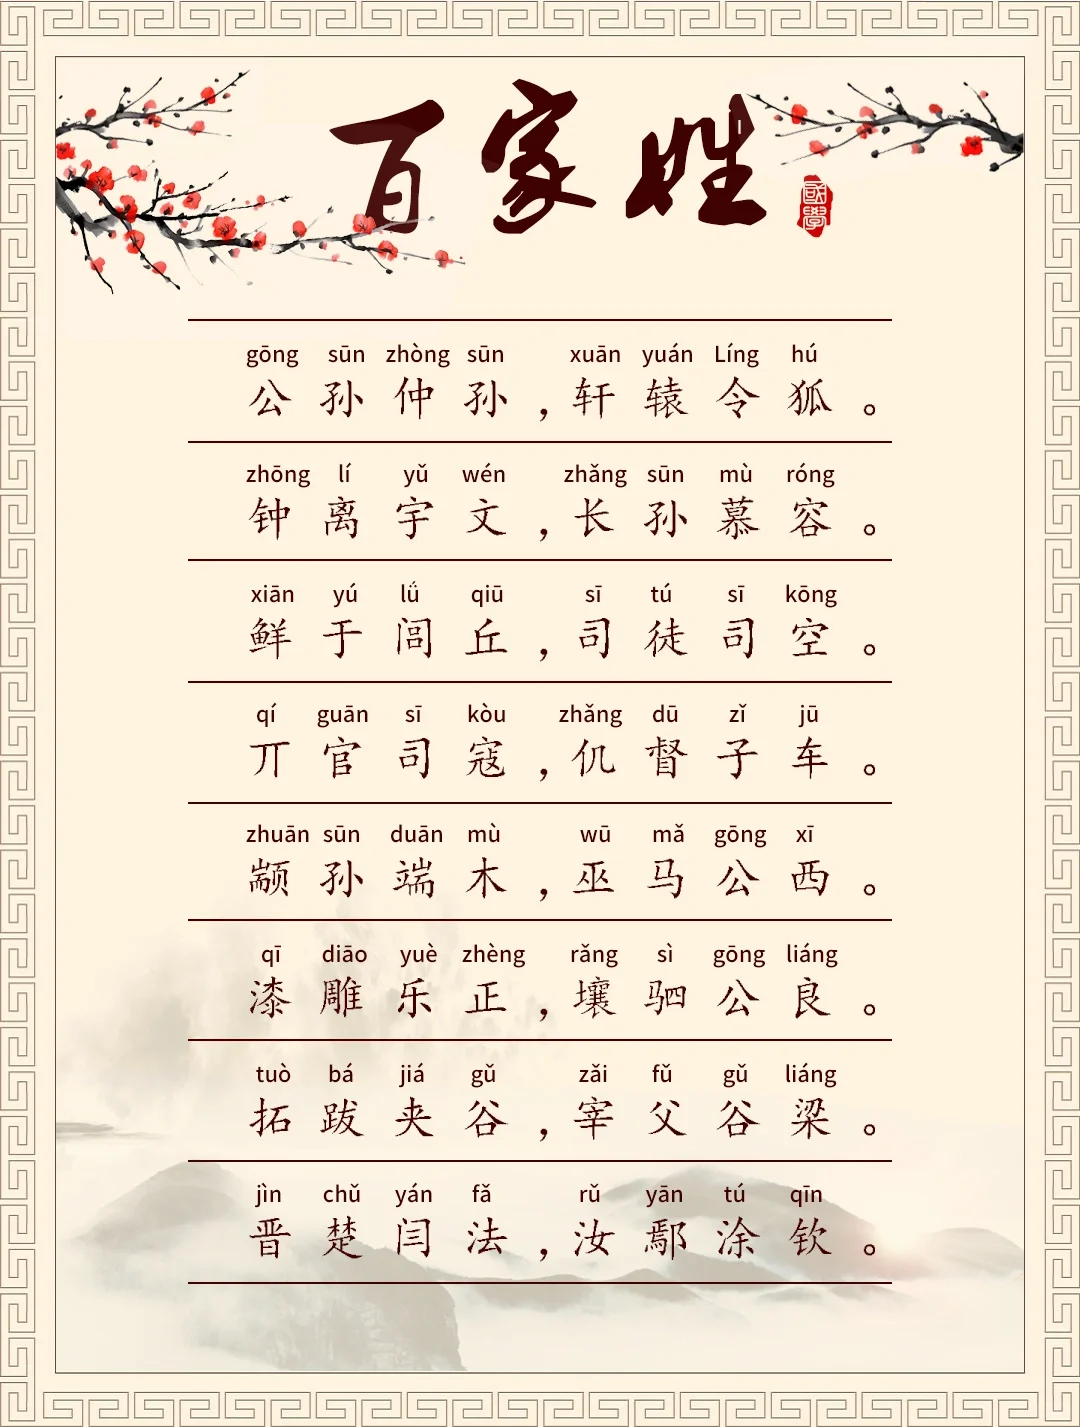 百家姓
國學
gōng sūn zhòng sūn xuān yuán Líng hú
公孙仲孙，轩辕令狐。
zhōng lí yǔ wén zhǎng sūn mù róng
钟离宇文，长孙慕容。
xiān yú lǘ qiū sī tú sī kōng
鲜于闾丘，司徒司空。
qí guān sī kòu zhǎng dū zǐ jū
亓官司寇，仉督子车。
zhuān sūn duān mù wū mǎ gōng xī
颛孙端木，巫马公西。
qī diāo yuè zhèng rǎng sì gōng liáng
漆雕乐正，壤驷公良。
tuò bá jiá gǔ zǎi fǔ gǔ liáng
拓跋夹谷，宰父谷梁。
jìn chǔ yán fǎ rǔ yān tú qīn
晋楚闫法，汝鄢涂钦。